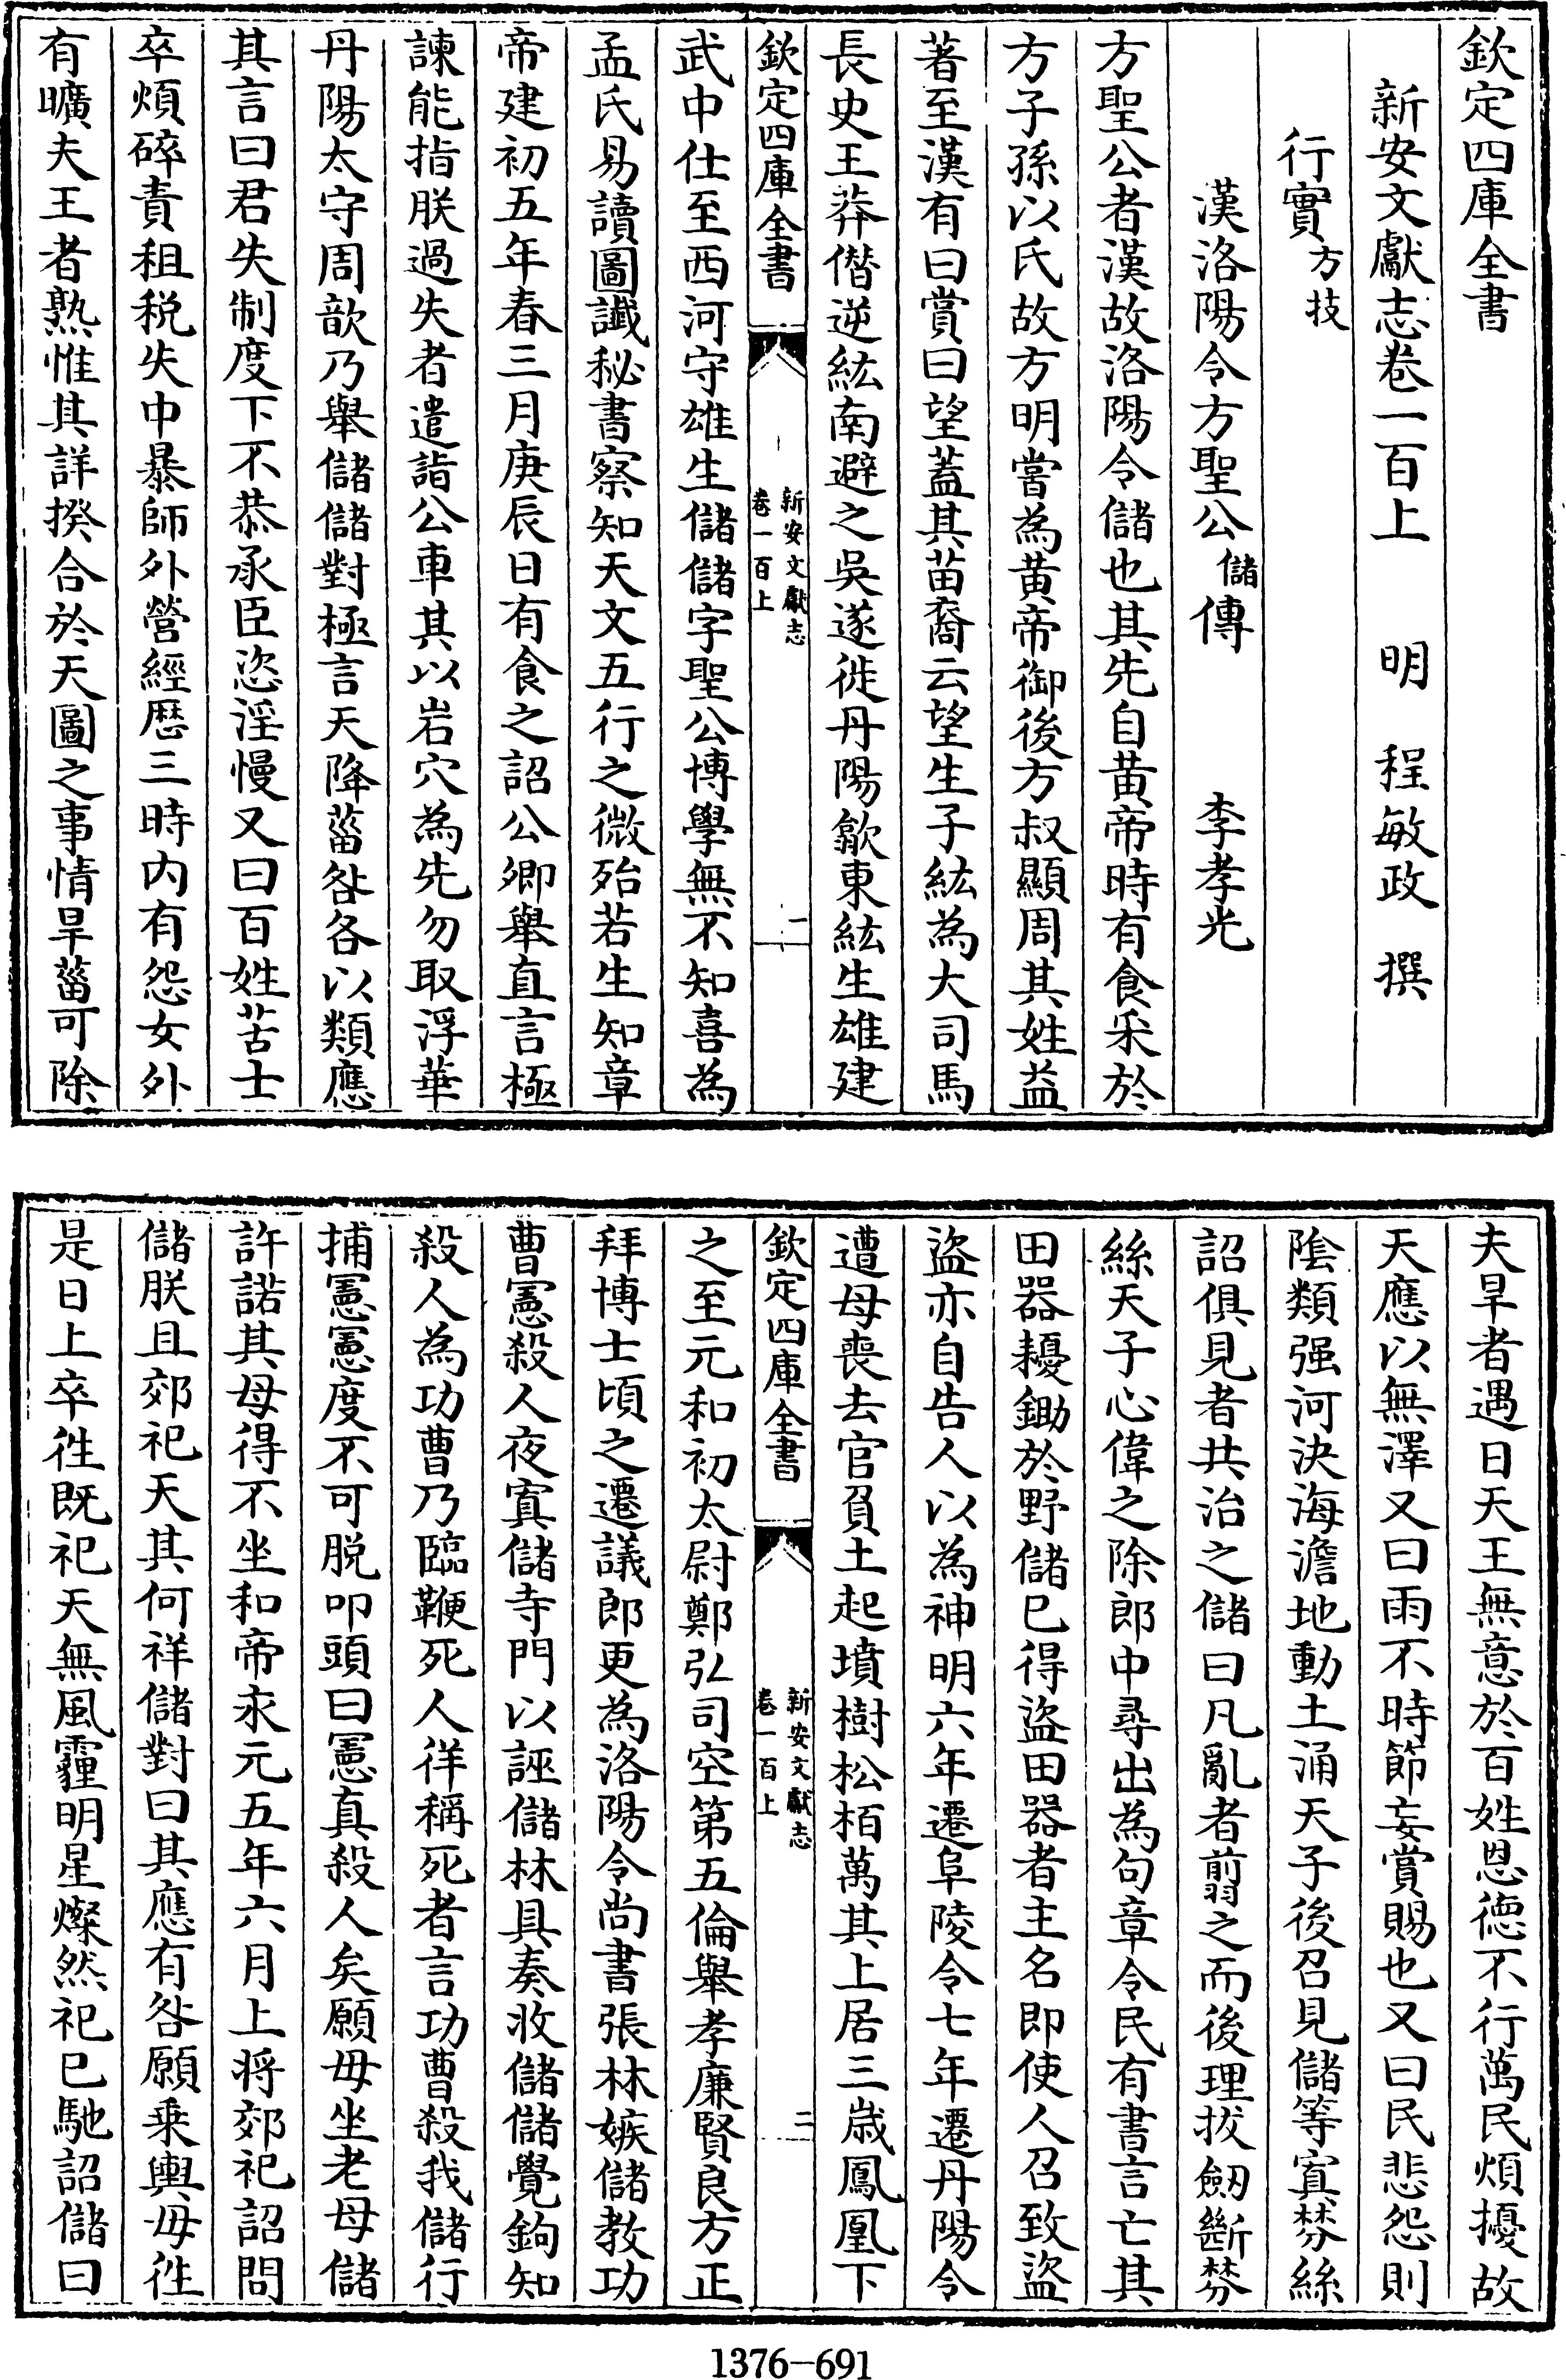 欽定四庫全書
新安文獻志卷一百上　明　程敏政　撰
行實方技
漢洛陽令方聖公儲傳　李孝光
方聖公者漢故洛陽令儲也其先自黄帝時有食采於
方子孫以氏故方明嘗為黄帝御後方叔顯周其姓益
著至漢有曰賞曰望蓋其苗裔云望生子紘為大司馬
長史王莽僭逆紘南避之吳遂徙丹陽歙東紘生雄建
欽定四庫全書
新安文獻志
卷一百上
一
武中仕至西河守雄生儲儲字聖公博學無不知喜為
孟氏易讀圖讖秘書察知天文五行之微殆若生知章
帝建初五年春三月庚辰日有食之詔公卿舉直言極
諫能指朕過失者遣詣公車其以岩穴為先勿取浮華
丹陽太守周歆乃舉儲儲對極言天降菑咎各以類應
其言曰君失制度下不恭承臣恣淫慢又曰百姓苦士
卒煩碎責租税失中暴師外營經歴三時内有怨女外
有曠夫王者熟惟其詳揆合於天圖之事情旱菑可除
夫旱者遇日天王無意於百姓恩徳不行萬民煩擾故
天應以無澤又曰雨不時節妄賞賜也又曰民悲怨則
陰類强河決海澹地動土涌天子後召見儲等寘棼絲
詔俱見者共治之儲曰凡亂者翦之而後理拔劒斷棼
絲天子心偉之除郎中尋出為句章令民有書言亡其
田器耰鋤於野儲已得盜田器者主名即使人召致盜
盜亦自告人以為神明六年遷阜陵令七年遷丹陽令
遭母喪去官負土起墳樹松栢萬其上居三歳鳳凰下
欽定四庫全書
新安文獻志
卷一百上
二
之至元和初太尉鄭弘司空第五倫舉孝廉賢良方正
拜博士頃之遷議郎更為洛陽令尚書張林嫉儲教功
曹憲殺人夜寘儲寺門以誣儲林具奏收儲儲覺鉤知
殺人為功曹乃臨鞭死人佯稱死者言功曹殺我儲行
捕憲憲度不可脱叩頭曰憲真殺人矣願毋坐老母儲
許諾其母得不坐和帝永元五年六月上將郊祀詔問
儲朕且郊祀天其何祥儲對曰其應有咎願乗輿毋徃
是日上卒徃既祀天無風霾明星燦然祀已馳詔儲曰
1376-691